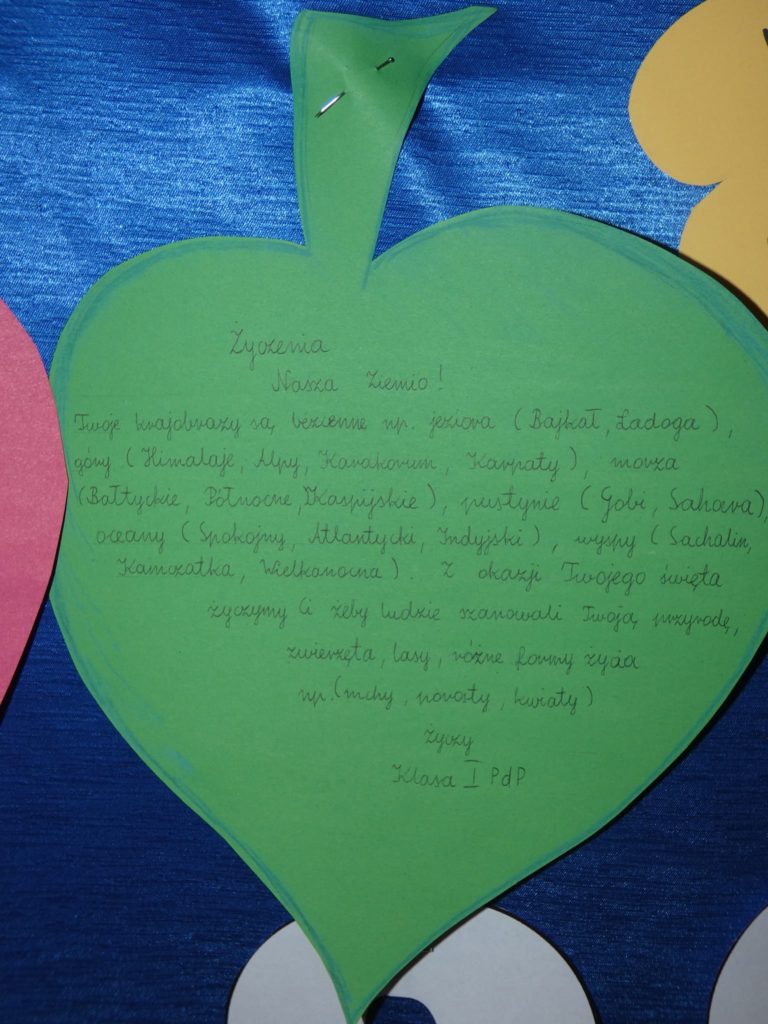 Życzenia
Nasza Ziemio!
Twoje krajobrazy są bezcenne np. jeziora (Bajkał, Ładoga),
góry (Himalaje, Alpy, Karakorum, Karpaty), morza
(Bałtyckie, Północne, Kaspijskie), pustynie (Gobi, Sahara),
oceany (Spokojny, Atlantycki, Indyjski), wyspy (Sachalin,
Kamczatka, Wielkanocna). Z okazji Twojego święta
życzymy Ci żeby ludzie szanowali Twoją przyrodę,
zwierzęta, lasy, różne formy życia
np.(mchy, porosty, kwiaty)
życzy
Klasa I PdP